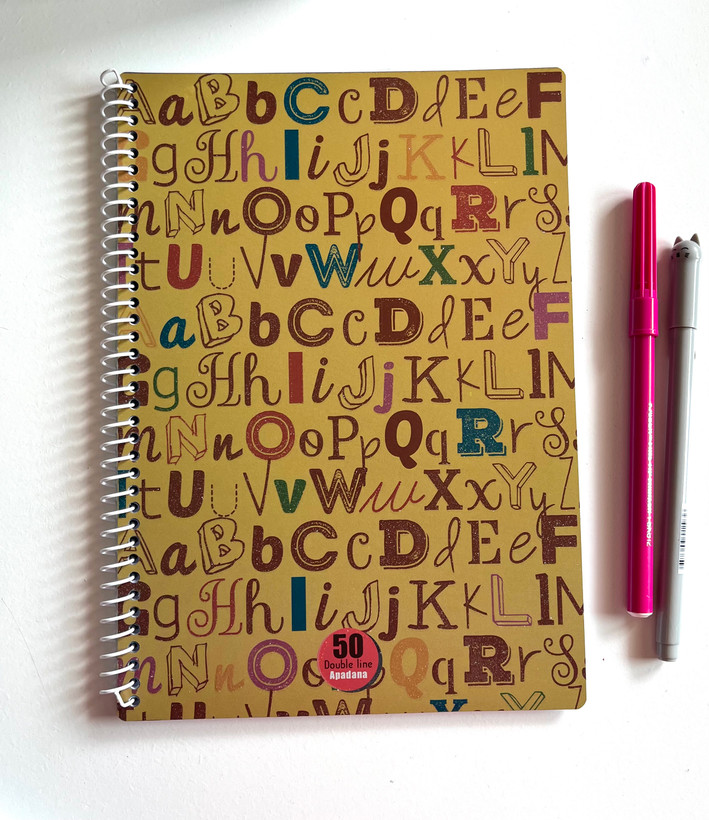 A a B b C c D d E e F
G g H h I i J j K k L l M
m N n O o P p Q q R r S s
T t U u V v W w X x Y y Z
A a B b C c D d E e F
G g H h I i J j K k L l M
m N n O o P p Q q R r S s
T t U u V v W w X x Y y Z
A a B b C c D d E e F
G g H h I i J j K k L l M
m N n O o P Q q R r S s
50
Double line
Apadana
t U u V v W X Y Z